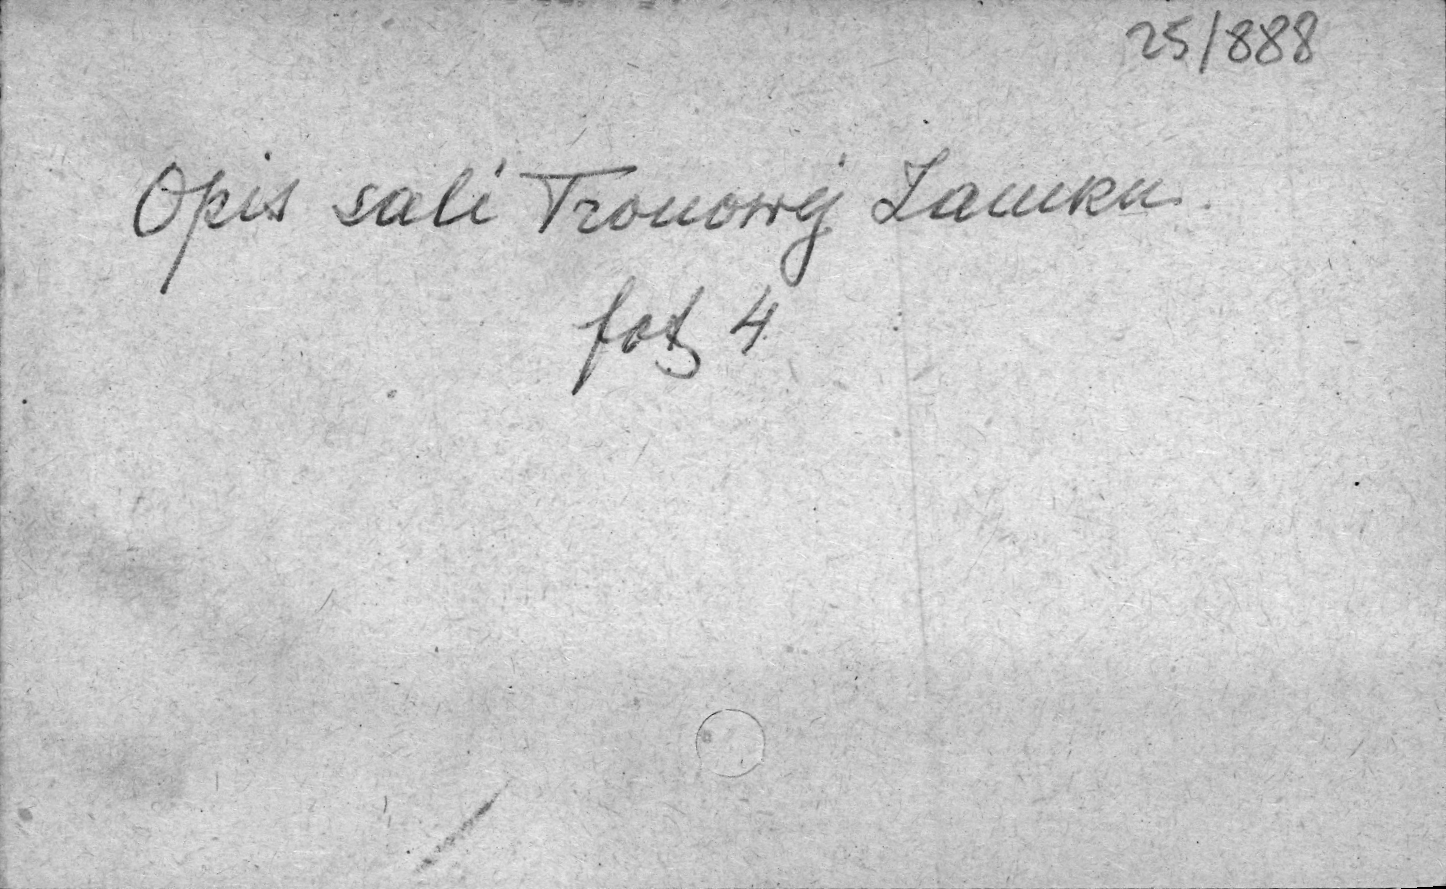 25/888
Opis sali Tronowej Zamku.
fot 4